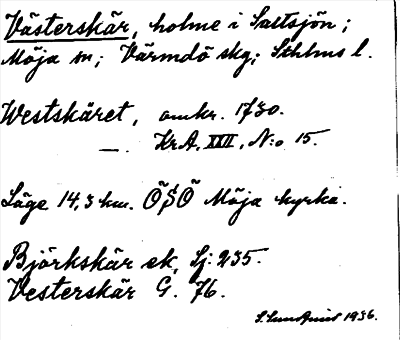 Västerskär, holme i Saltsjön;
Möja sn; Värmdö skg; Sthlms l.
Westskäret, omkr. 1730.
—„— KrA. XXII, N:o 15.
Läge 14,3 km. ÖSÖ Möja kyrka.
Björkskär ek. Sj. 235.
Vesterskär G. 76.
1936.